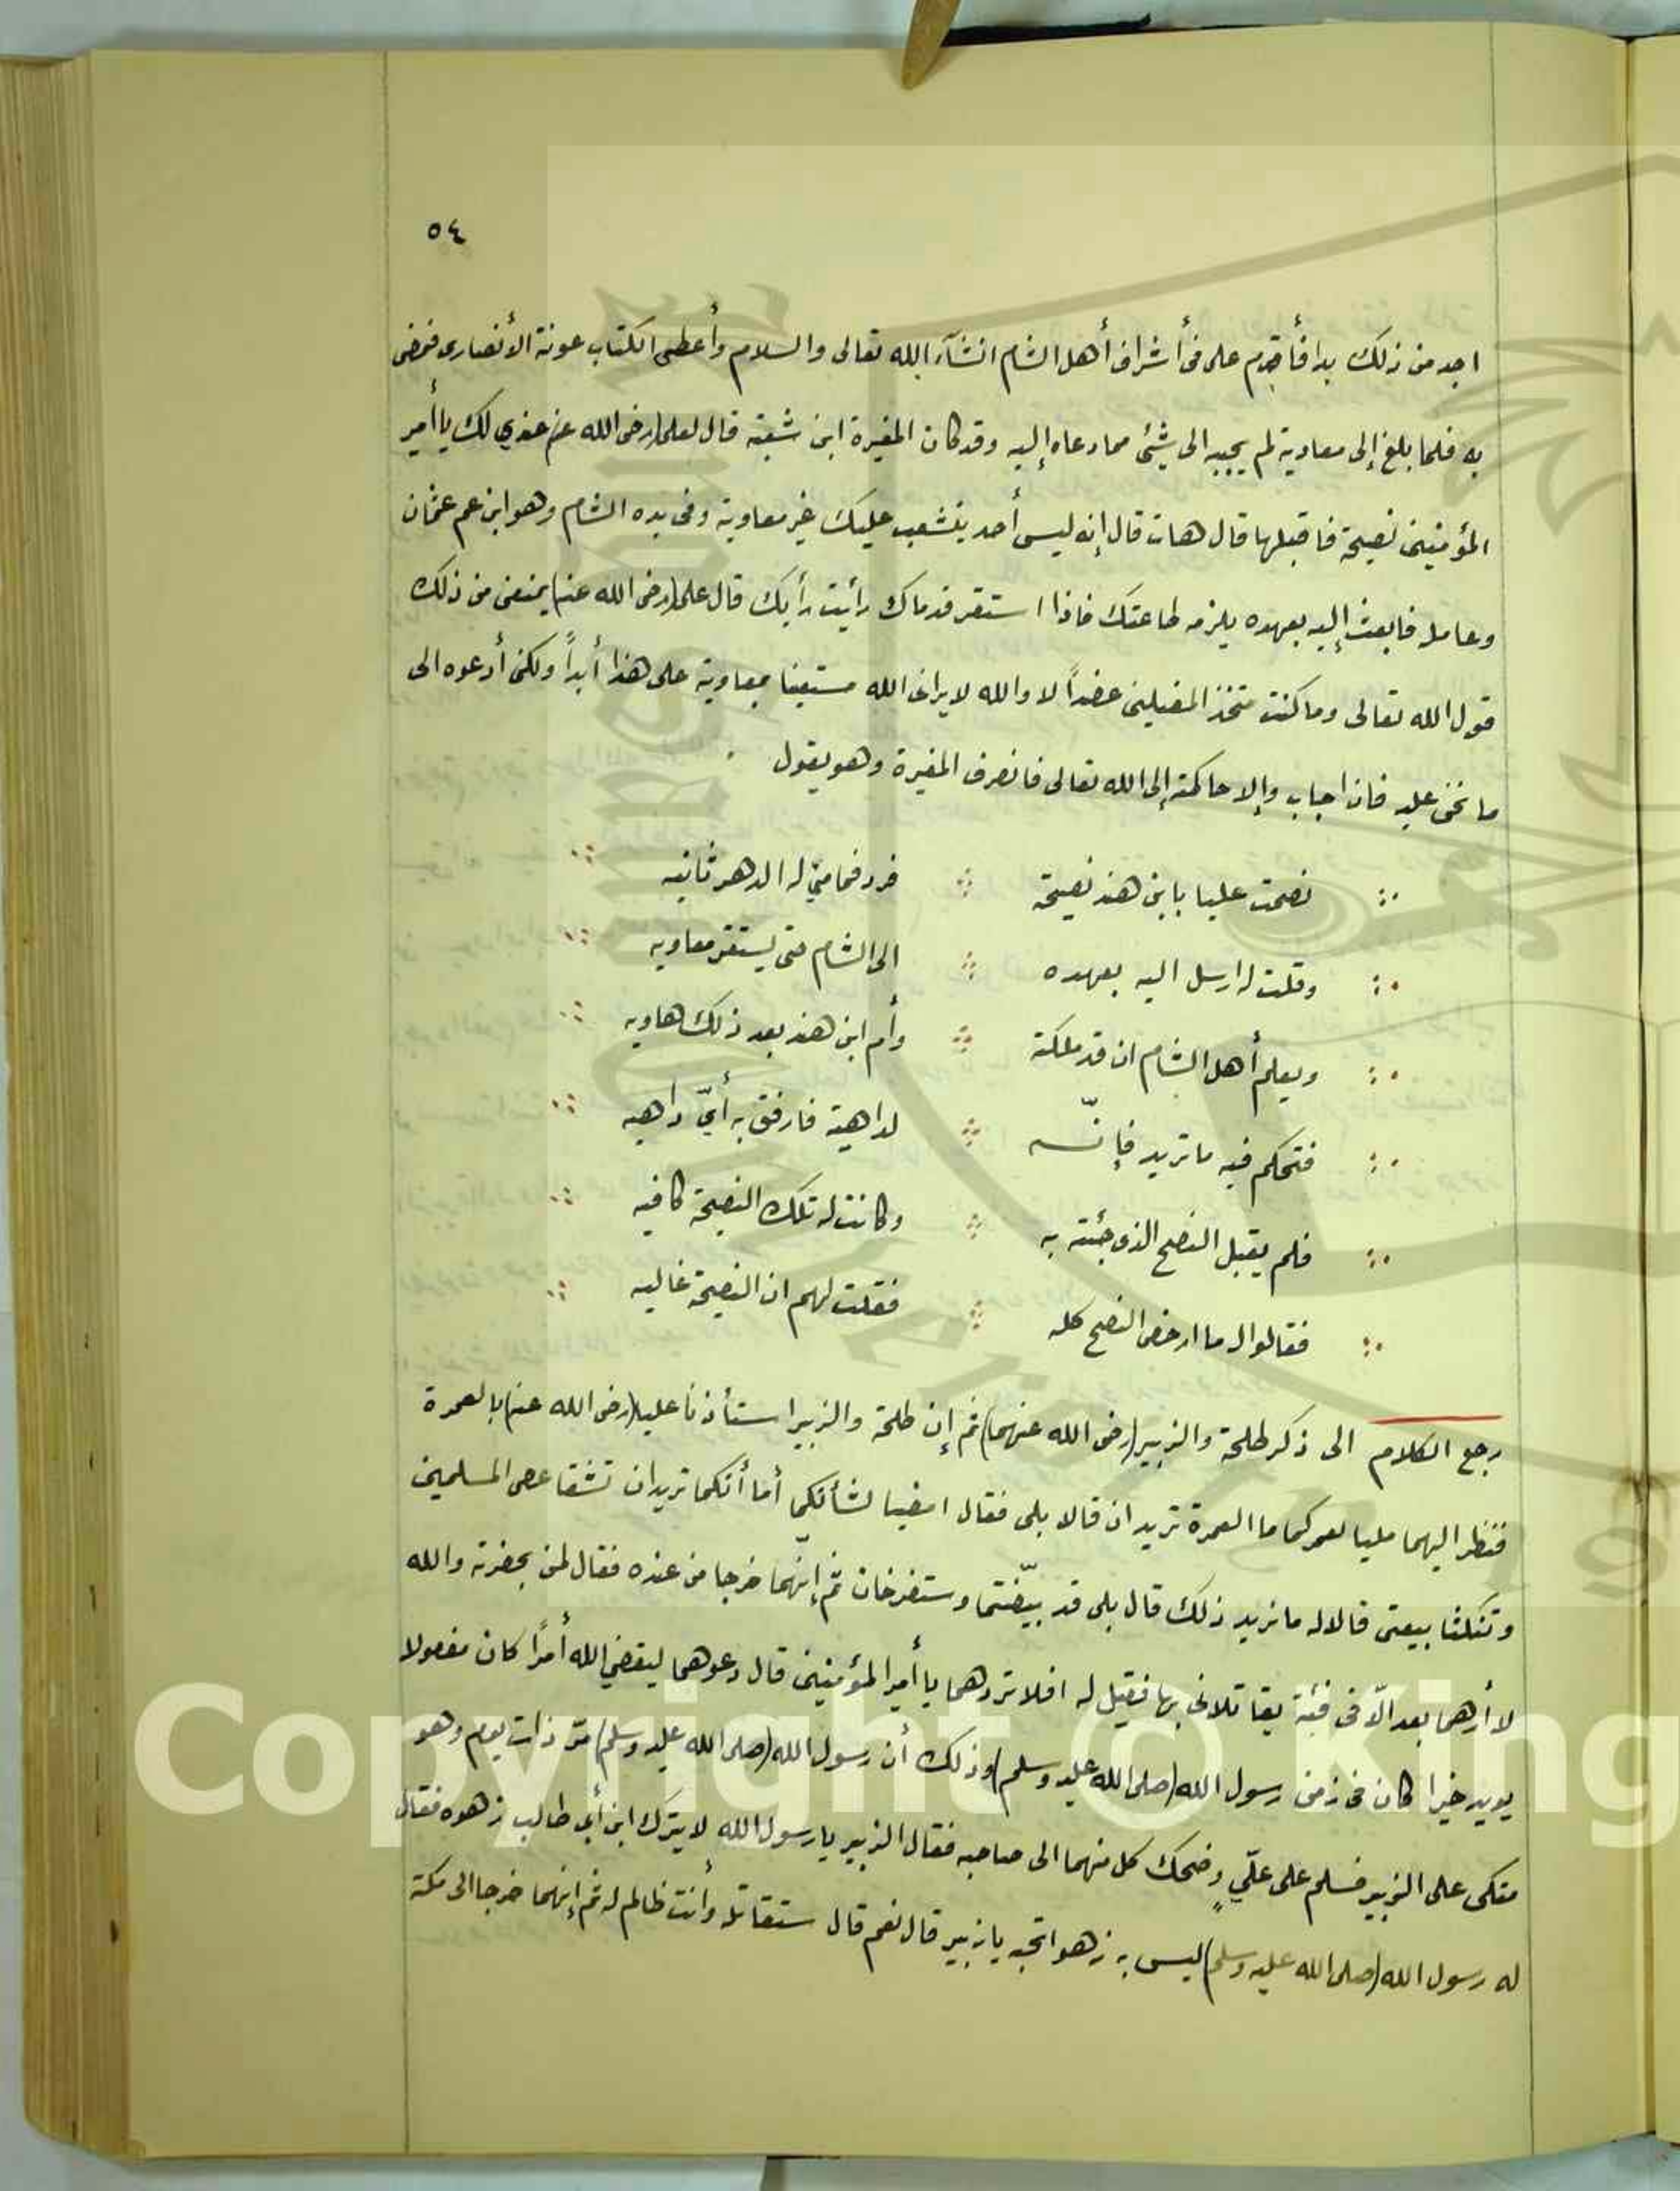 ٥٤
اجد من ذلك بدا فأقدم على فى أشراف أهل الشام انشآء الله تعالى والسلام وأعطى الكتاب عونة الأنصارى فمضى
به فلما بلغ إلى معاوية لم يجيبه الى شيئ مما دعاه إليه وقد كان المغيرة ابن شعبة قال لعلى (رضى الله عنه) عندي لك يا أمير
المؤمنين نصيحة فاقبلها قال هات قال إنه ليس أحد يتشعب عليك غير معاوية وفى يده الشام وهو ابن عم عثمان
وعامله فابعث إليه بعهده يلزمه طاعتك فاذا استقر قدماك رأيت رأيك قال على (رضى الله عنه) يمنعنى من ذلك
قول الله تعالى وما كنت متخذ المضلين عضداً لا والله لا يرانى الله مستعينا بمعاوية على هذا أبداً ولكن أدعوه الى
ما نحن عليه فان اجاب وإلا حاكمته إلى الله تعالى فانصرف المغيرة وهو يقول
نصحت عليا بابن هند نصيحة فرد فما منى له الدهر ثانيه
وقلت له ارسل اليه بعهده الى الشام حتى يستقر معاويه
ويعلم أهل الشام ان قد ملكته وأم ابن هند بعد ذلك هاويه
فتحكم فيه ما تريد فإنّه لداهية فارفق به أيّ داهيه
فلم يقبل النصح الذى جئته به وكانت له تلك النصيحة كافيه
فقالوا له ما ارخص النصح كله فقلت لهم ان النصيحة غاليه
رجع الكلام الى ذكر طلحة والزبير (رضى الله عنهما) ثم إن طلحة والزبير استأذنا عليا (رضى الله عنه) بالعمرة
فنظر اليهما مليا لعمركما ما العمرة تريدان قالا بلى فقال امضيا لشأنكما أما أنكما تريدان تشقا عصى المسلمين
وتنكثا بيعتى قالا له ما نريد ذلك قال بلى قد بيّنتما وستفرخان ثم إنّهما خرجا من عنده فقال لمن بحضرته والله
لا أرهما بعد الّا فى فئة يقاتلانى بها فقيل له افلا تردهما يا أمير المؤمنين قال دعوهما ليقضي الله أمرًا كان مفعولا
يويد خيرا كان فى زمن رسول الله (صلى الله عليه وسلم) وذلك أن رسول الله (صلى الله عليه وسلم) مرّ ذات يوم وهو
متكى على الزبير فسلم على علّي وضحك كل منهما الى صاحبه فقال الزبير يا رسول الله لا يترك ابن أبى طالب زهوه فقال
له رسول الله (صلى الله عليه وسلم) ليس به زهو اتحبه يا زبير قال نعم قال ستقاتله وأنت ظالم له ثم إنهما خرجا الى مكة
Copyright © King